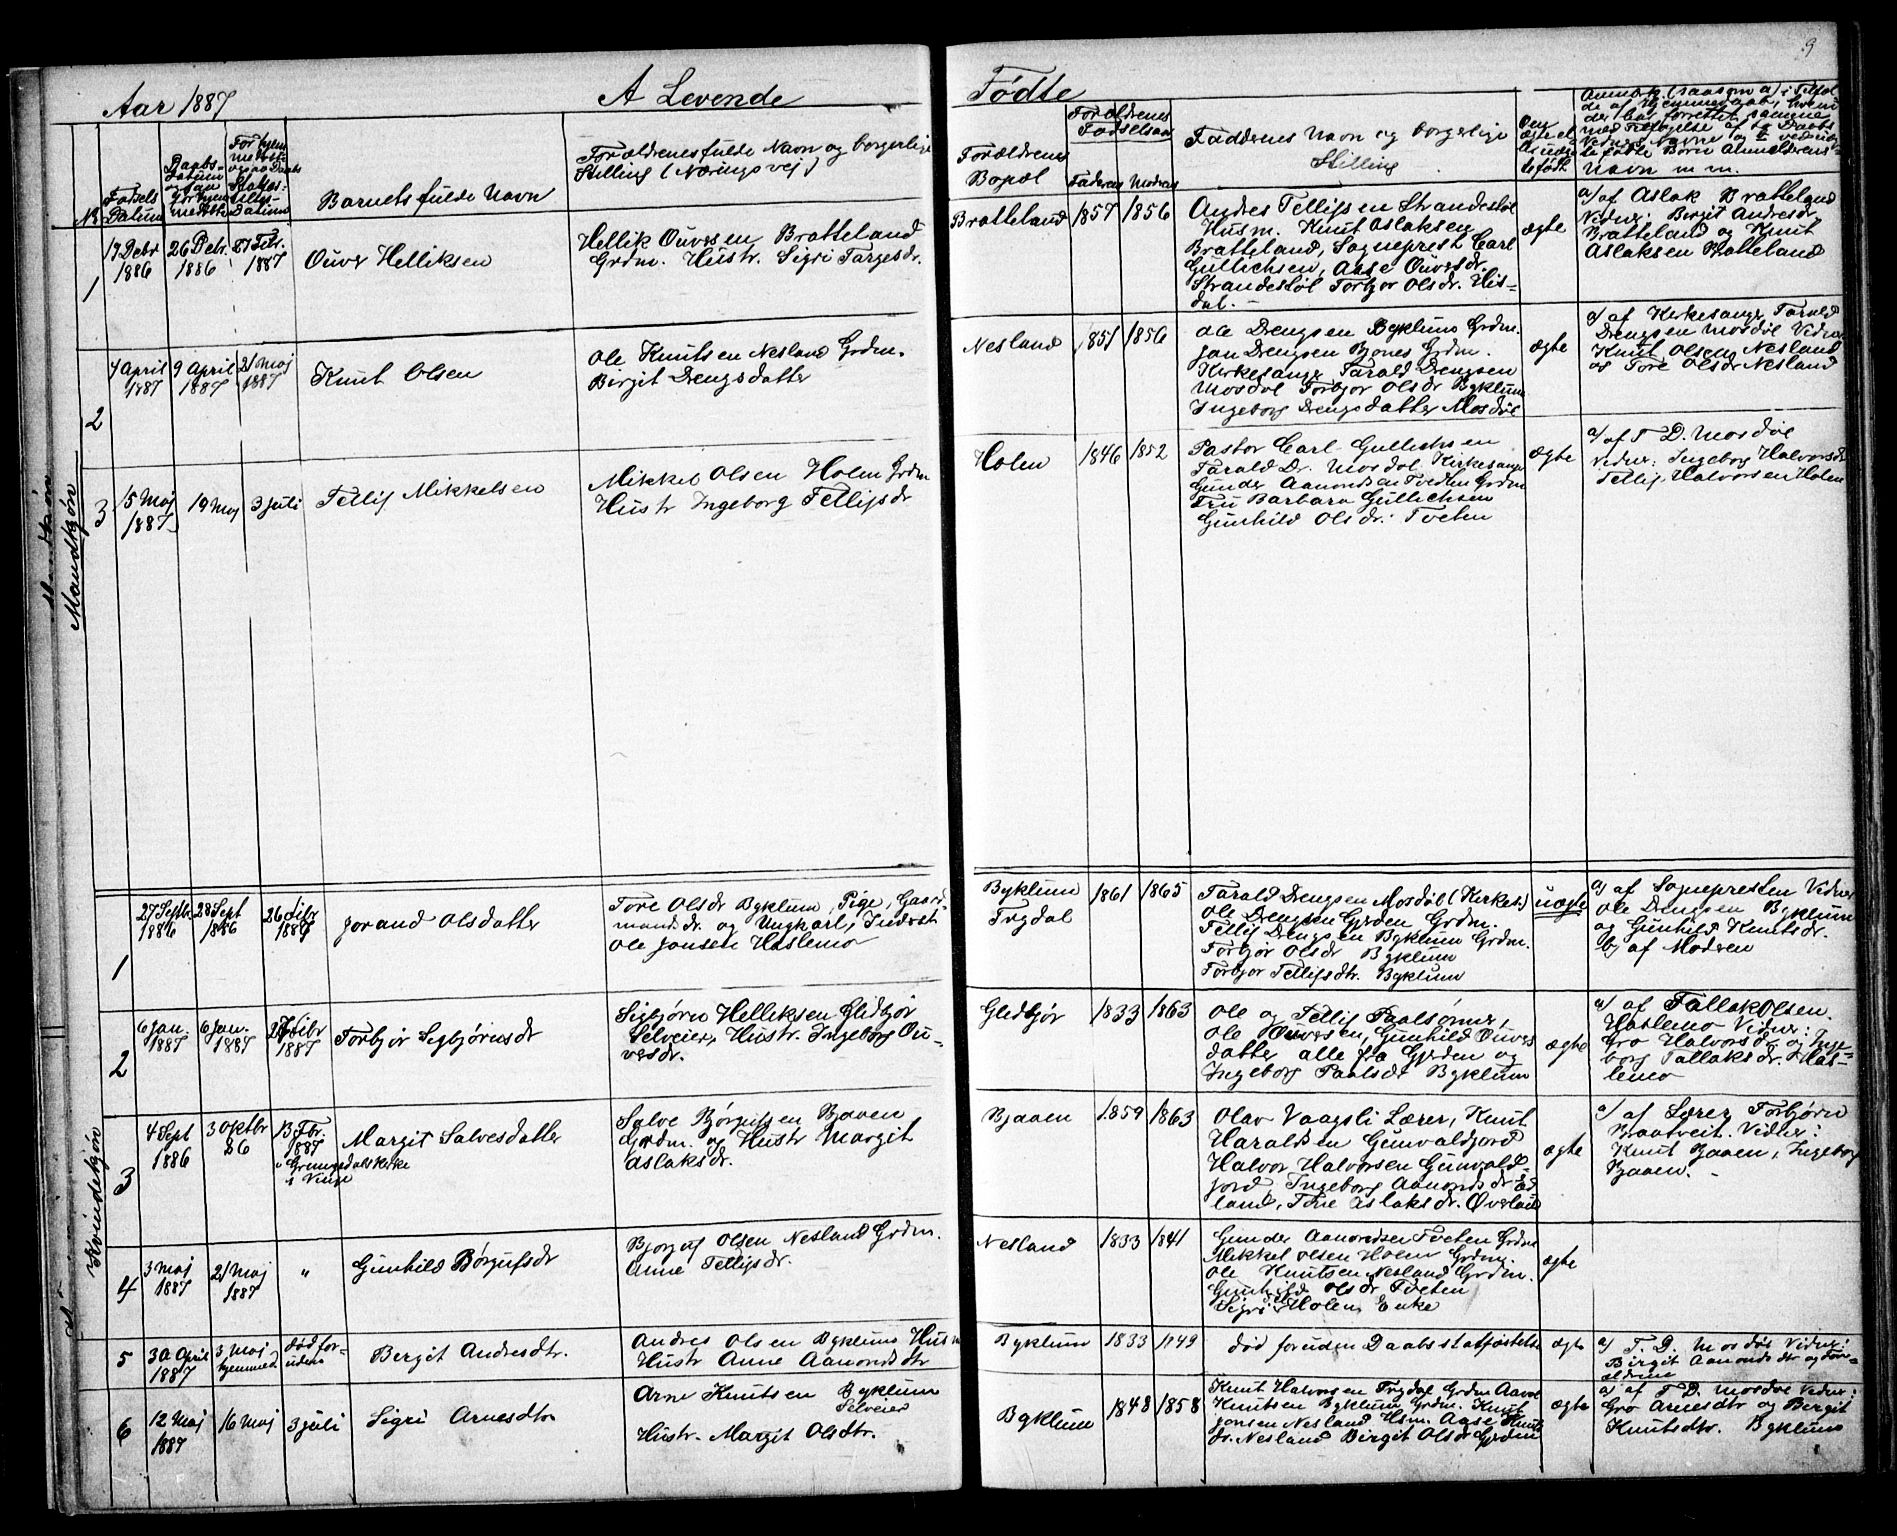 9
Aar 1887
A Levende
Fødte
No
Fødsels
Datum
Daabs-
Datum
Barnets fulde Navn
Forældrenes fulde Navn og borgerlige
Stilling (Næringsvej)
Forældrenes
Bopæl
Forældrenes
Fødselsaar
Faderens Modrens
Faddernes Navn og borgerlige
Stilling
Mandkjøn
1
17 Debr
1886
26 Debr.
1886
Febr.
1887
Ouver Helliksen
Hellik Ouversen Bratteland
Grdm. Hustr. Sigri Targesdr.
Bratteland
1857
1856
Andres Tellifsen Strandestøl
Husm. Knut Aslaksen
Bratteland, Sogneprest Carl
Gullichsen, Aase Ouversdr.
Strandestøl Torbjor Olsdr. His-
dal. -
ægte
a) af Aslak Bratteland
Vidner: Birgit Andresdr.
Bratteland og Knut
Aslaksen Bratteland
2
4 April
1887
9 April
1887
21 Maj
1887
Knut Olsen
Ole Knutsen Nesland Grdm.
Birgit Drengsdatter
Nesland
1851
1856
Ole Drengsen Byklum Grdm.
Jan Drengsen Bjones Grdm.
Kirkesanger Tarald Drengsen
Mosdøl Torbjor Olsdr Byklum
Ingeborg Drengsdatter Mosdøl
ægte
a) af Kirkesanger Tarald
Drengsen Mosdøl Vidner
Knut Olsen Nesland
og Tore Olsdr Nesland
3
15 Maj
1887
19 Maj
3 juli
Tellif Mikkelsen
Mikkel Olsen Holen Grdm
Hustr Ingeborg Tellifsdr
Holen
1846
1852
Pastor Carl Gullichsen
Tarald Dr. Mosdøl Kirkesanger
Gunder Aanondsen Tveten Grdm
Fru Barbara Gullichsen
Gunhild Olsdr. Tveten
ægte
a) af T. D. Mosdøl
Vidner: Ingeborg Halvorsdr
Tellif Halvorsen Holen
Kvindekjøn
1
27 Septbr.
1886
28 Sept
1886
Jorand Olsdatter
Tore Olsdr Byklum, Pige, Gaard-
mandsdr. og Ungkarl, Inderst
Ole Jonsen Haslemo
Byklum
Trydal
1861
1865
Tarald Drengsen Mosdøl (Kirkes.)
Ole Drengsen Gjerden Grdm.
Tellif Drengsen Byklum Grdm.
Torbjør Olsdr Byklum
Torbjor Tellifsdtr. Byklum
uægte
a) af Sognepresten Vidner
Ole Drengsen Byklum
og Gunhild Knutsdr.
b) af Modren
2
6 Jan.
1887
6 Jan.
1887
1887
Torbjør Sigbjørnsdr
Sigbjørn Helliksen Gledbjør
Selveier, Hustr. Ingeborg Ou-
versdr.
Gledbjør
1833
1863
Ole og Tellif Paalsønner,
Ole Ouversen, Gunhild Ouvers
datter alle fra Gjerden og
Ingeborg Paalsdr Byklum
ægte
a) af Tallak Olsen
Haslemo Vidner:
Gro Halvorsdr og Inge-
borg Tallaksdr. Has-
lemo
3
4 Sept
1886
3 Oktbr
86
13 Fbr.
1887
i Grungedals Kirke
i Vinje
Margit Salvesdatter
Salve Børgufsen Bjaaen
Grdm. og Hustr Margit
Aslaksdr.
Bjaaen
1859
1863
Olav Vaagsli Lærer, Knut
Haraldsen Gunvaldjord
Halvor Halvorsen Gunvald-
jord, Ingeborg Aanondsdr Ed
land, Tone Aslaksdr. Øverland
ægte
a) af Lærer Torbjørn
Braatveit. Vidner:
Knut Bjaaen, Ingeborg
Bjaaen. -
4
3 Maj
1887
21 Maj
1887
"
Gunhild Børgufsdr
Bjorguf Olsen Nesland Grdm.
Anne Tellifsdr.
Nesland
1833
1841
Gunder Aanondsen Tveten Grdm
Mikkel Olsen Holen Grdm.
Ole Knutsen Nesland Grdm.
Gunhild Olsdr Tveten
Sigri Holen, Enke
ægte
5
30 April
1887
3 Maj
hjemmed.
død for-
uden
Bergit Andresdtr.
Andres Olsen Byklum Husm
Hustr Anne Aanondsdtr
Byklum
1833
1849
død foruden Daabsstatfæstelse
ægte
a) T. D. Mosdøl Vidner:
Birgit Aanondsdtr og Foræ-
ldrene
6
12 Maj
1887
16 Maj
3 juli
Sigri Arnesdtr
Arne Knutsen Byklum
Selveier
Hustr. Margit Olsdtr.
Byklum
1848
1858
Knut Halvorsen Trydal Grdm Aavol
Knutsen Byklum Grdm. Knut
Jonsen Nesland Hsm. Aase Knuts
dr. Nesland Birgit Olsdr Gjerden
ægte
a) af T. D. Mosdøl Vidner:
Gro Arnesdtr og Bergit
Knutsdtr. Byklum